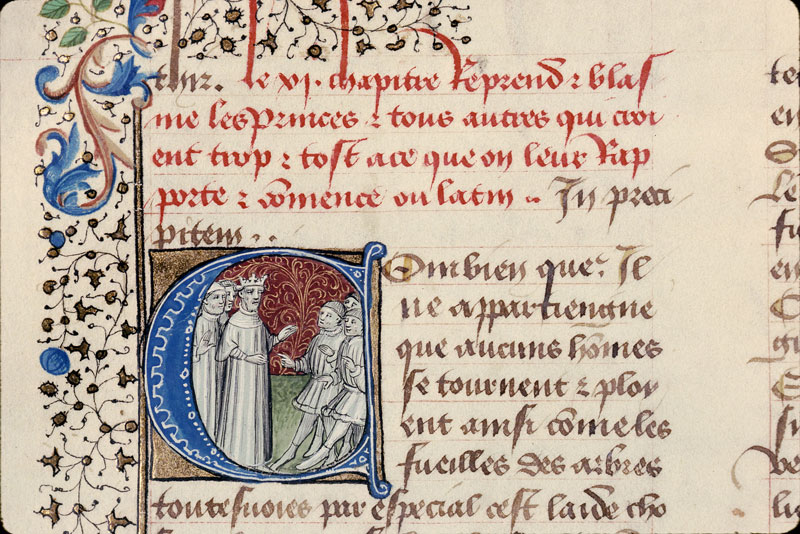 thir. le vi. chapitre Reprend & blas
me les Princes & tous autres qui croi
ent trop & tost a ce que on leur Rap
porte & comence ou latin .. In preci
pitem ..
Combien que Il
ne appartiengne
que aucuns hommes
se tournent & ploy
ent ainsi come les
fueilles des arbres
toutesuoies par especial cest laide cho